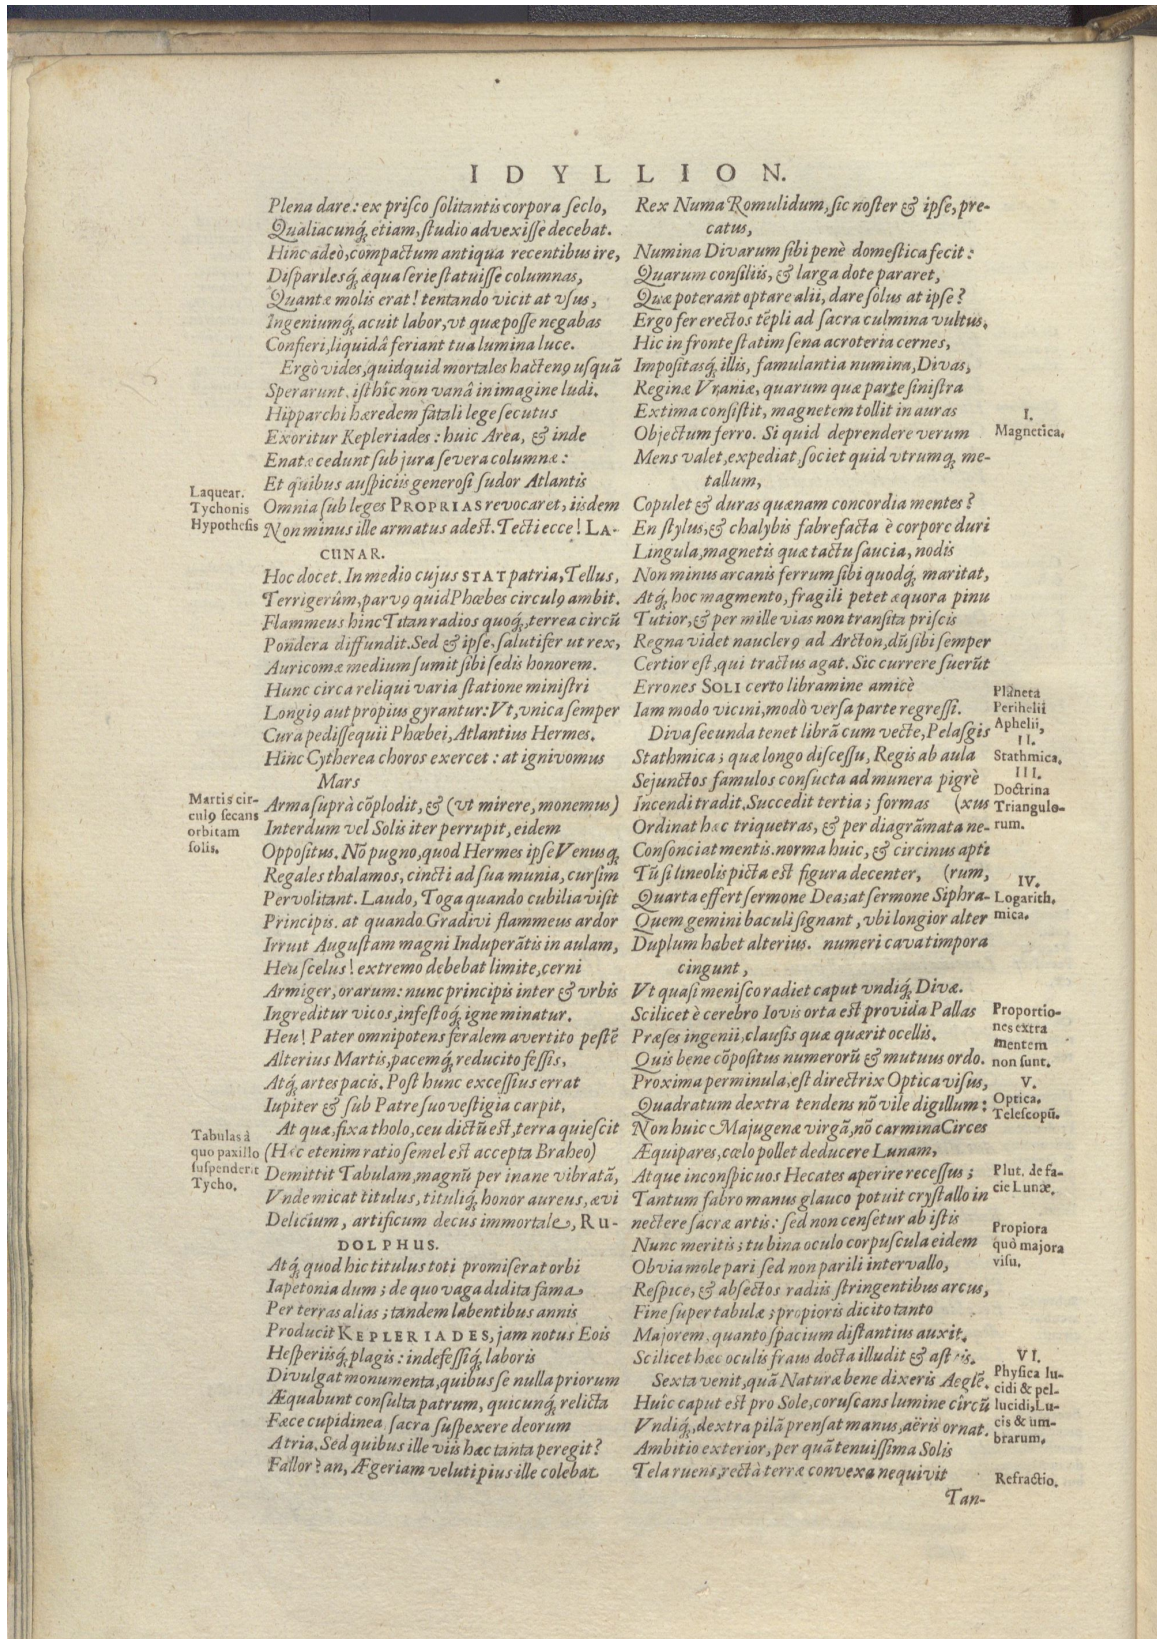 IDYLLION.
Plena dare: ex prisco solitantis corpora seclo,
Qualiacunq́; etiam, studio advexisse decebat.
Hinc adeò, compactum antiqua recentibus ire,
Disparilesq́; æqua serie statuisse columnas,
Quantæ molis erat! tentando vicit at vsus,
Ingeniumq́; acuit labor, vt quæ posse negabas
Confieri, liquidâ feriant tua lumina luce.
Ergò vides, quidquid mortales hactenꝰ usquã
Sperarunt, isthîc non vanâ in imagine ludi.
Hipparchi hæredem fatali lege secutus
Exoritur Kepleriades: huic Area, & inde
Enatæ cedunt sub jura severa columnæ:
Et quibus auspiciis generosi sudor Atlantis
Laquear.
Tychonis
Hypothesis
Omnia sub leges PROPRIAS revocaret, iisdem
Non minus ille armatus adest. Tecti ecce! LA-
CUNAR.
Hoc docet. In medio cujus STAT patria, Tellus,
Terrigerûm, parvꝰ quid Phœbes circulꝰ ambit.
Flammeus hinc Titan radios quoq́;, terrea circũ
Pondera diffundit. Sed & ipse, salutifer ut rex,
Auricomæ medium sumit sibi sedis honorem.
Hunc circa reliqui varia statione ministri
Longiꝰ aut propius gyrantur: Vt, vnica semper
Cura pedissequii Phœbei, Atlantius Hermes.
Hinc Cytherea choros exercet: at ignivomus
Mars
Martis cir-
culꝰ secans
orbitam
solis.
Arma suprà cõplodit, & (vt mirere, monemus)
Interdum vel Solis iter perrupit, eidem
Oppositus. Nõ pugno, quod Hermes ipse Venusq́;
Regales thalamos, cincti ad sua munia, cursim
Pervolitant. Laudo, Toga quando cubilia visit
Principis. at quando Gradivi flammeus ardor
Irruit Augustam magni Induperãtis in aulam,
Heu scelus! extremo debebat limite, cerni
Armiger, orarum: nunc principis inter & vrbis
Ingreditur vicos, infestoq́; igne minatur.
Heu! Pater omnipotens feralem avertito pestẽ
Alterius Martis, pacemq́; reducito fessis,
Atq́; artes pacis. Post hunc excessius errat
Iupiter & sub Patre suo vestigia carpit.
Tabulas à
quo paxillo
suspenderit
Tycho.
At quæ, fixa tholo, ceu dictũ est, terra quiescit
(Hæc etenim ratio semel est accepta Braheo)
Demittit Tabulam, magnũ per inane vibratã,
Vnde micat titulus, tituliq́; honor aureus, ævi
Delicium, artificum decus immortale, RU-
DOLPHUS.
Atq́; quod hic titulus toti promiserat orbi
Iapetonia dum; de quo vaga didita fama
Per terras alias; tandem labentibus annis
Producit KEPLERIADES, jam notus Eois
Hesperiisq́; plagis: indefessiq́; laboris
Divulgat monumenta, quibus se nulla priorum
Æquabunt consulta patrum, quicunq́; relicta
Fæce cupidinea sacra suspexere deorum
Atria. Sed quibus ille viis hæc tanta peregit?
Fallor? an, Ægeriam veluti pius ille colebat
Rex Numa Romulidum, sic noster & ipse, pre-
catus,
Numina Divarum sibi penè domestica fecit:
Quarum consiliis, & larga dote pararet,
Quæ poterant optare alii, dare solus at ipse?
Ergo fer erectos tẽpli ad sacra culmina vultus.
Hic in fronte statim sena acroteria cernes,
Impositasq́; illis, famulantia numina, Divas,
Reginæ Vraniæ, quarum quæ parte sinistra
Extima consistit, magnetem tollit in auras
I.
Magnetica.
Objectum ferro. Si quid deprendere verum
Mens valet, expediat, societ quid vtrumq́; me-
tallum,
Copulet & duras quænam concordia mentes?
En stylus, & chalybis fabrefacta è corpore duri
Lingula, magnetis quæ tactu saucia, nodis
Non minus arcanis ferrum sibi quodq́; maritat,
Atq́; hoc magmento, fragili petet æquora pinu
Tutior, & per mille vias non transita priscis
Regna videt nauclerꝰ ad Arcton, dũ sibi semper
Certior est, qui tractus agat. Sic currere suerũt
Errones SOLI certo libramine amicè
Planeta
Perihelii
Aphelii,
Iam modo vicini, modò versa parte regressi.
Diva secunda tenet librã cum vecte, Pelasgis
II.
Stathmica.
Stathmica; quæ longo discessu, Regis ab aula
Sejunctos famulos consucta ad munera pigrè
III.
Doctrina
Triangulo-
rum.
Incendi tradit. Succedit tertia; formas (xus
Ordinat hæc triquetras, & per diagrãmata ne-
Consonciat mentis. norma huic, & circinus apti
Tũ si lineolis picta est figura decenter, (rum,
IV.
Logarith.
mica.
Quarta effert sermone Dea; at sermone Siphra-
Quem gemini baculi signant, vbi longior alter
Duplum habet alterius. numeri cava timpora
cingunt,
Vt quasi menisco radiet caput vndiq́; Divæ.
Proportio-
nes extra
mentem
non sunt.
Scilicet è cerebro Iovis orta est provida Pallas
Præses ingenii, clausis quæ quærit ocellis.
Quis bene cõpositus numerorũ & mutuus ordo.
V.
Optica.
Telescopũ.
Proxima perminula, est directrix Optica visus,
Quadratum dextra tendens nõ vile digillum:
Non huic Majugenæ virgã, nõ carmina Circes
Æquipares, cœlo pollet deducere Lunam,
Plut. de fa-
cie Lunæ.
Atque inconspicuos Hecates aperire recessus;
Tantum fabro manus glauco potuit crystallo in
nectere sacræ artis: sed non censetur ab istis
Propiora
quò majora
visu.
Nunc meritis; tu bina oculo corpuscula eidem
Obvia mole pari sed non parili intervallo,
Respice, & absectos radiis stringentibus arcus,
Fine super tabulæ; propioris dicito tanto
Majorem, quanto spacium distantius auxit.
Scilicet hæc oculis fraus docta illudit & astris.
VI.
Physica lu-
cidi & pel-
lucidi, Lu-
cis & um-
brarum.
Sexta venit, quã Naturæ bene dixeris Aeglẽ.
Huîc caput est pro Sole, coruscans lumine circũ
Vndiq́;, dextra pilã prensat manus, aëris ornat.
Ambitio exterior, per quã tenuissima Solis
Refractio.
Tela ruens, rectà terræ convexa nequivit
Tan-